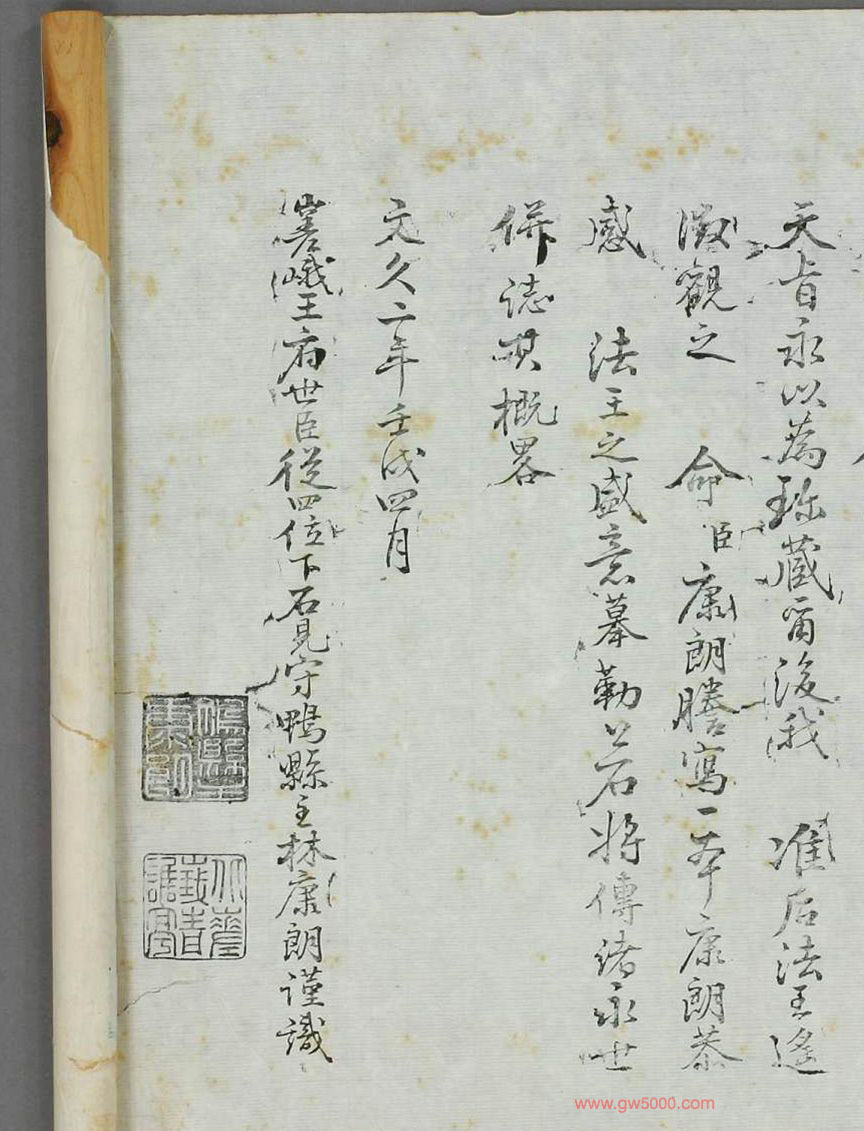 天旨永以為珍藏爾後我　准后法王遙
徵觀之　命臣康朗謄寫一本康朗恭
感　法王之盛意摹勒上石將傳諸永世
併誌其概畧
文久二年壬戌四月
嵯峨王府世臣從四位下石見守鴨縣主林康朗謹識
www.gw5000.com